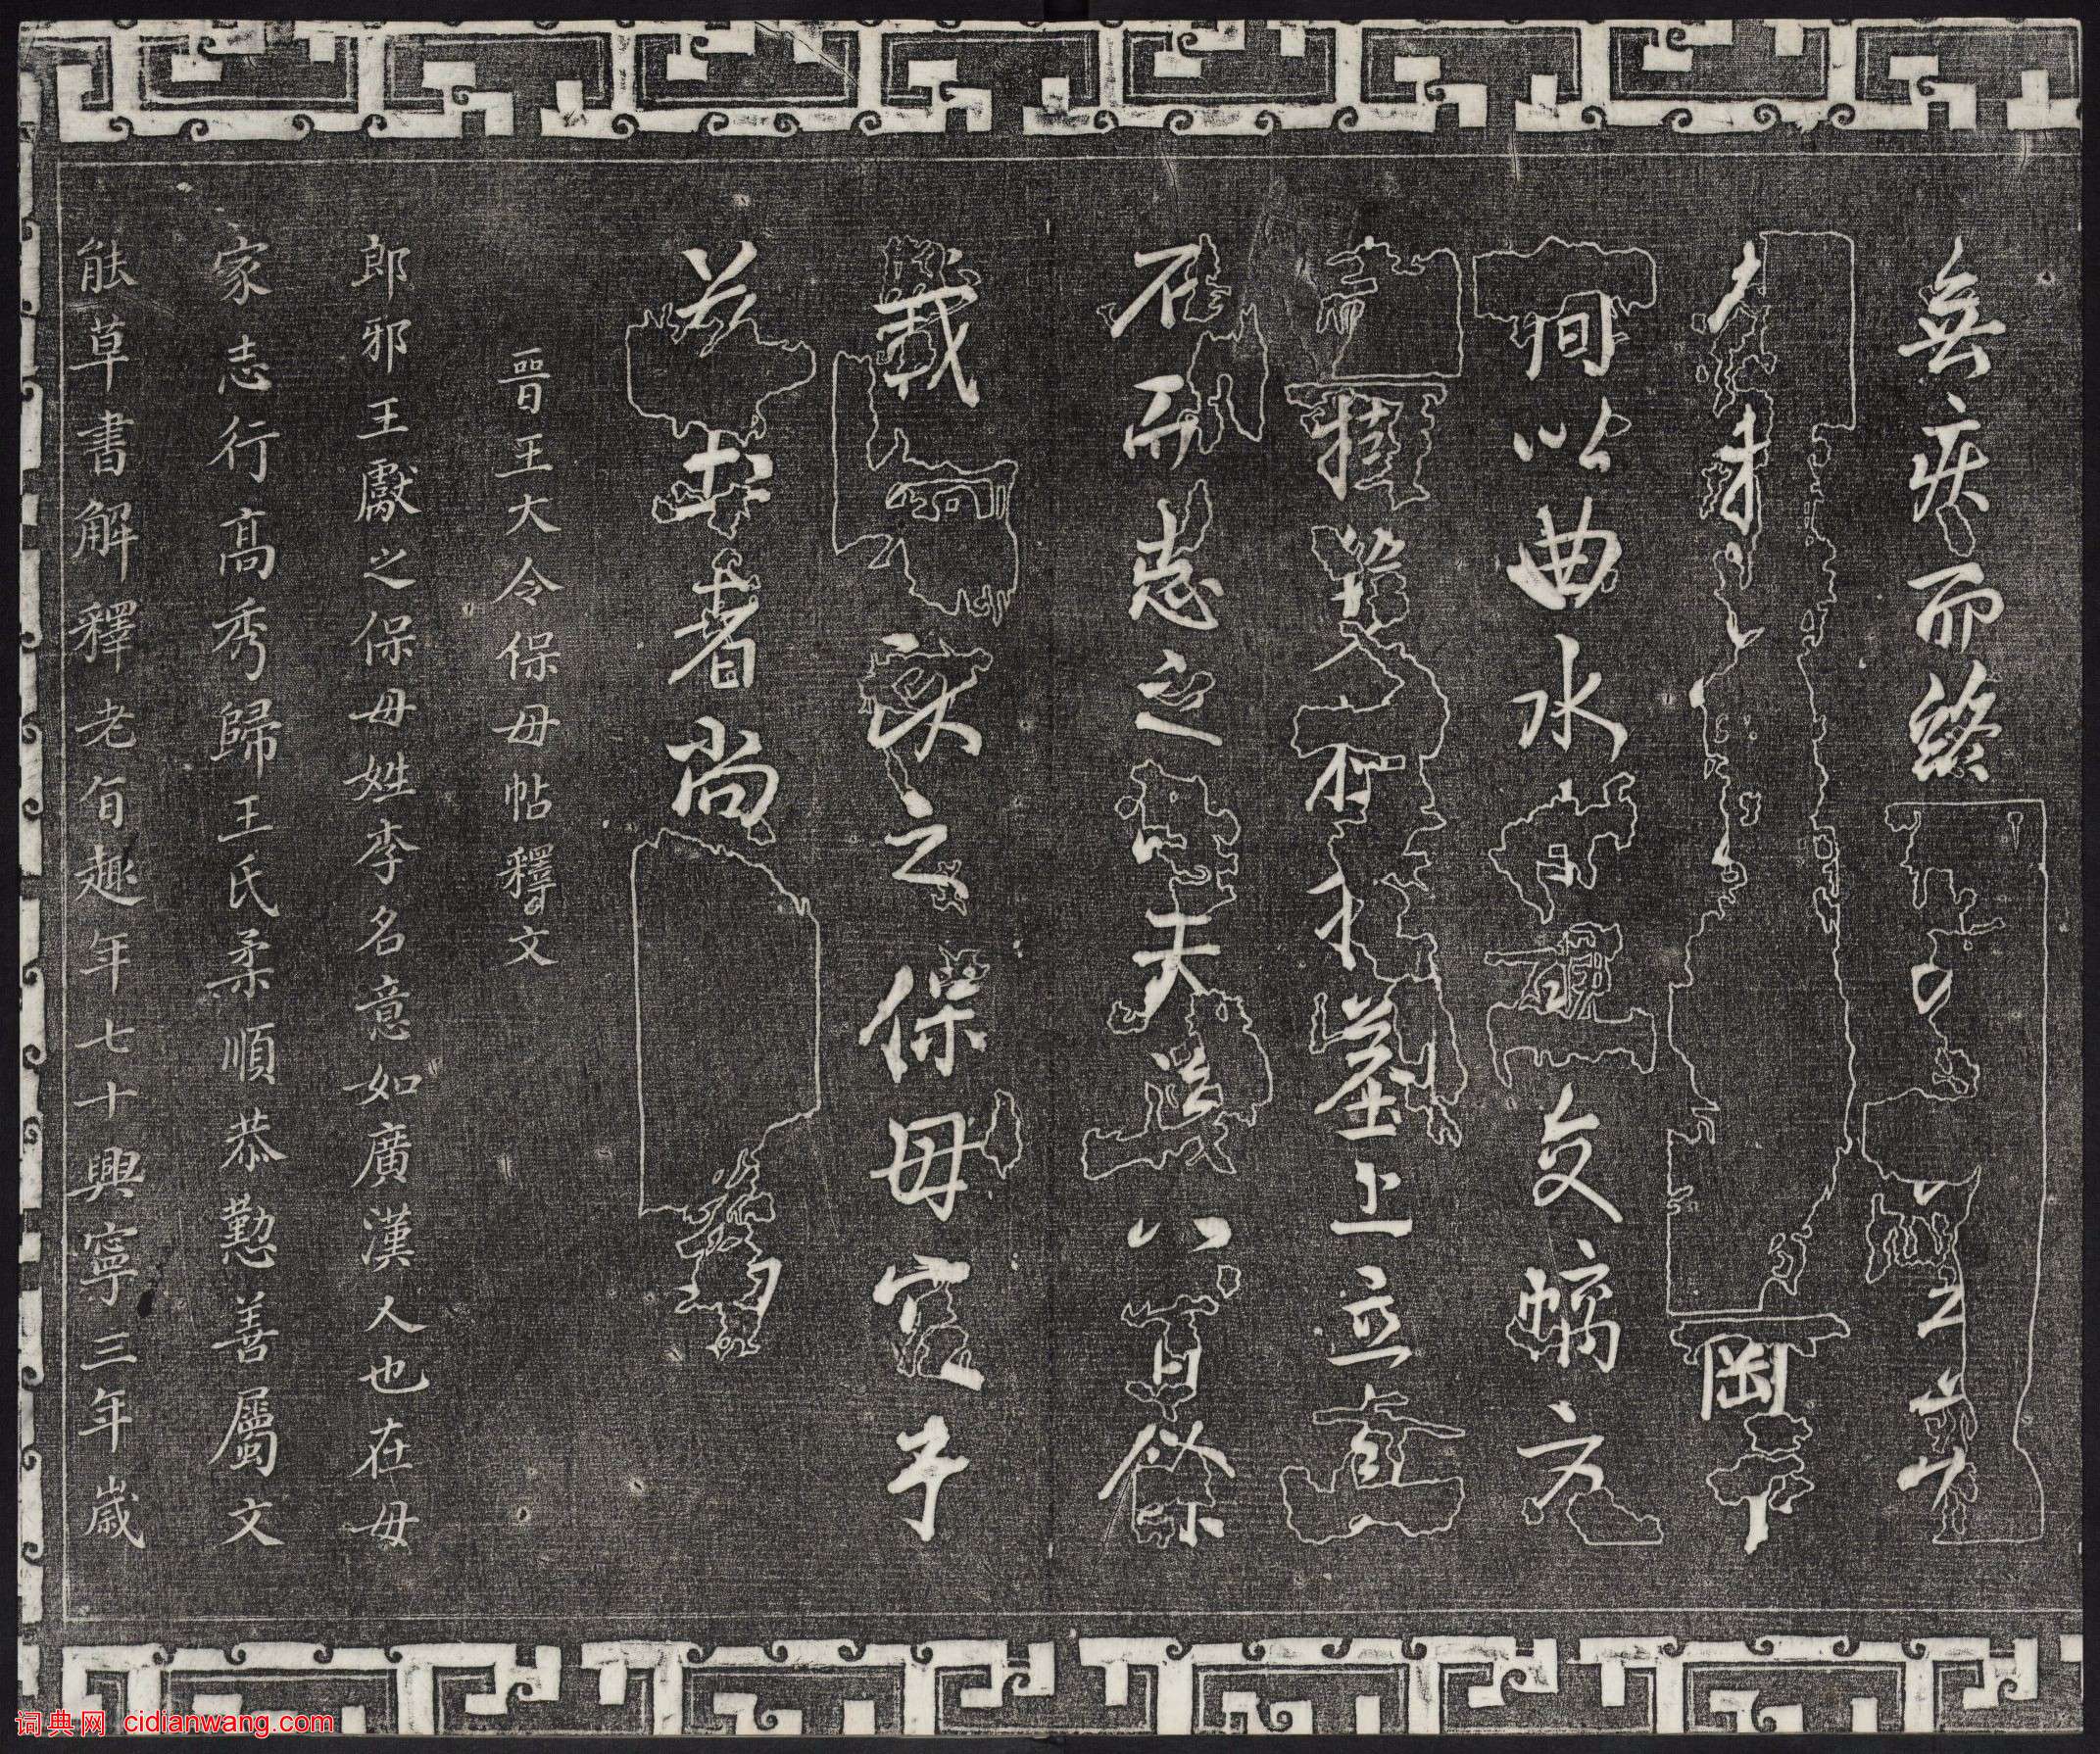 無疾而終
岡下
間以曲水 交螭方
壺 樹 墓上立貞
石而志之 天 八百餘
載 之保母宮于
茲土者尚
晉王大令保母帖釋文
郎邪王獻之保母姓李名意如廣漢人也在母
家志行高秀歸王氏柔順恭懃善屬文
能草書解釋老旨趣年七十興寧三年歲
词典网 cidianwang.com